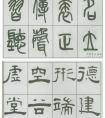 名立
表正
傳聲
習聽
德建
形端
空谷
虛堂